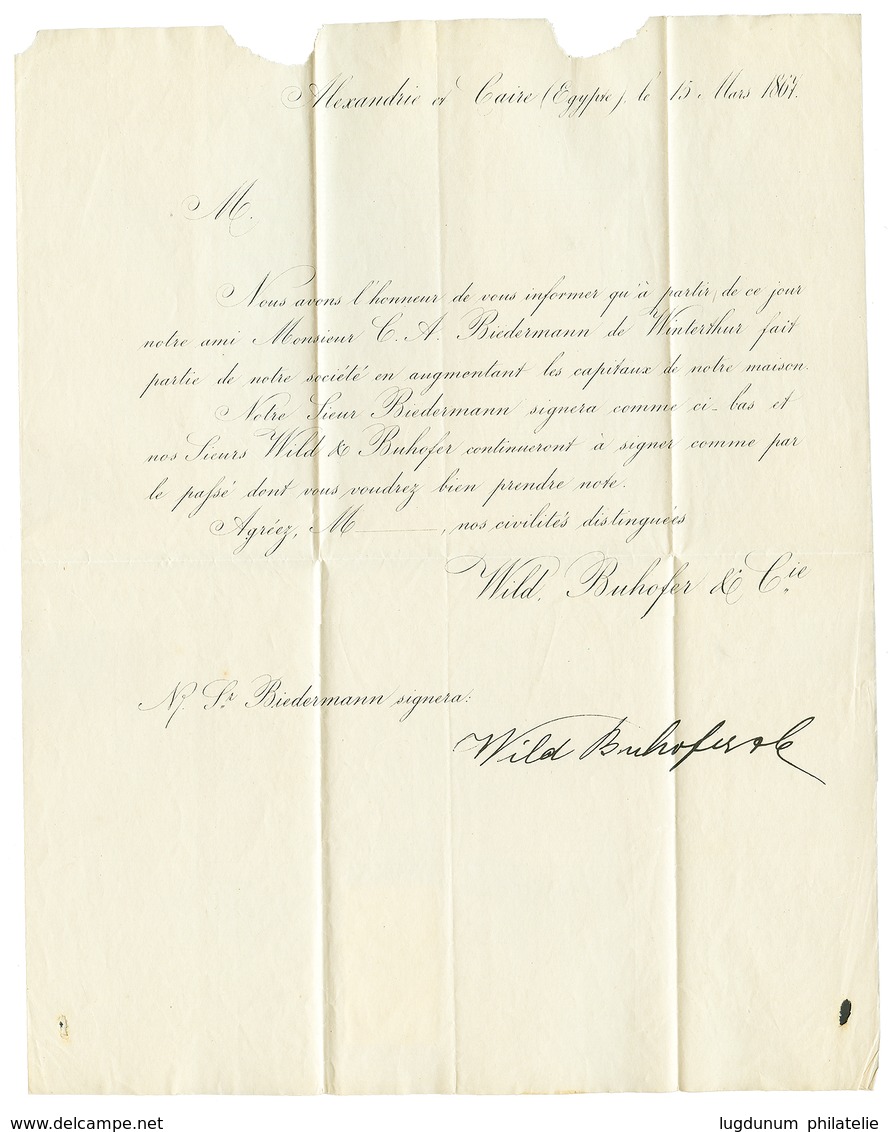 Alexandrie et Caire (Egypte), le 15 Mars 1867.
M.
Nous avons l'honneur de vous informer qu'à partir de ce jour
notre ami Monsieur C. A. Biedermann de Winterthur fait
partie de notre société en augmentant les capitaux de notre maison.
Notre Sieur Biedermann signera comme ci-bas et
nos Sieurs Wild & Buhofer continueront à signer comme par
le passé dont vous voudrez bien prendre note.
Agréez, M————, nos civilités distinguées
Wild, Buhofer & Cie
N/. Sr Biedermann signera:
Wild Buhofer & C
www.delcampe.net
lugdunum philatelie